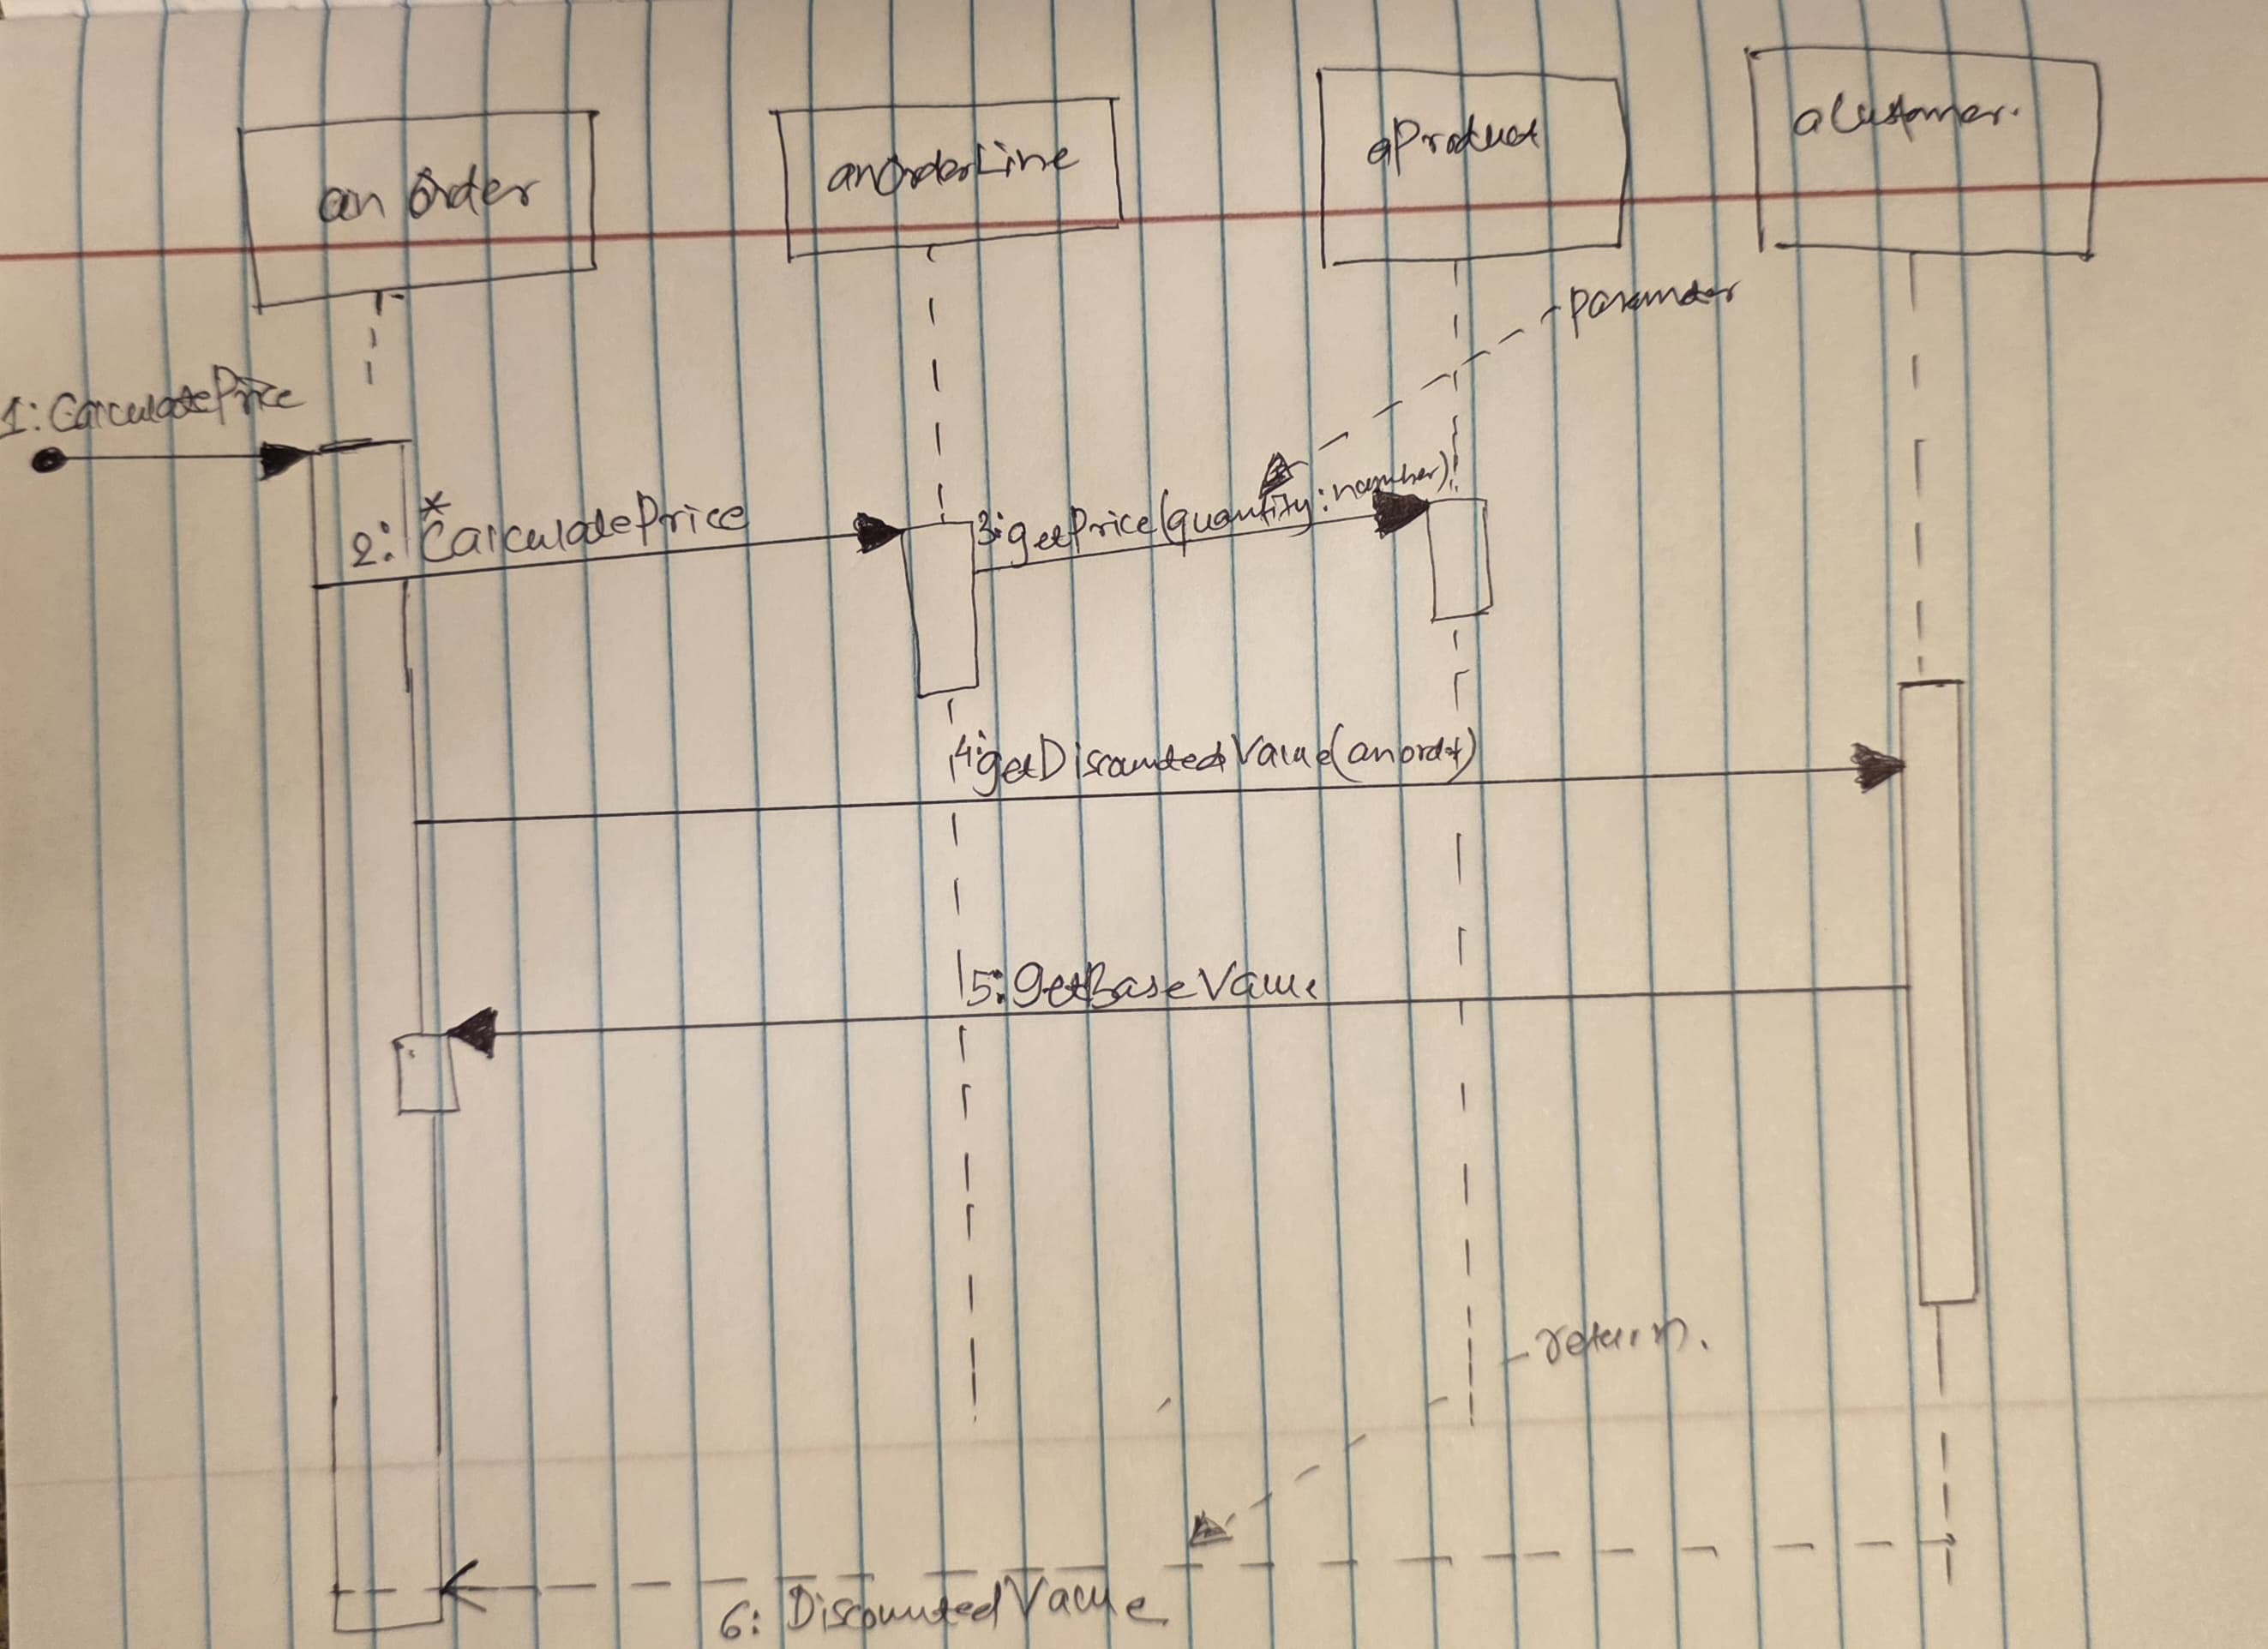 an Order
anOrderLine
aProduct
aCustomer.
parameter
1: CalculatePrice
2: * CalculatePrice
3: getPrice(quantity: number)
4: getDiscountedValue(anorder)
5: getBaseValue
return.
6: DiscountedValue